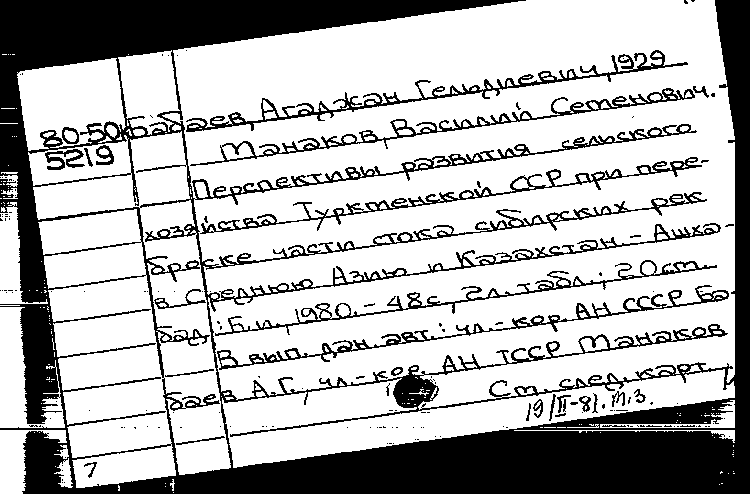 80-50к Бабаев, Агаджан Гельдиевич, 1929
5219 Манаков, Василий Семенович. -
Перспективы развития сельского
хозяйства Туркменской ССР при пере-
броске части стока сибирских рек
в Среднюю Азию и Казахстан. - Ашха-
бад: Б.и., 1980. - 48 с., 2 л. табл.; 20 см.
В вып. дан. авт.: чл.-кор. АН СССР Ба-
баев А.Г., чл.-кор. АН ТССР Манаков
См. след. карт.
19/II-81.
7